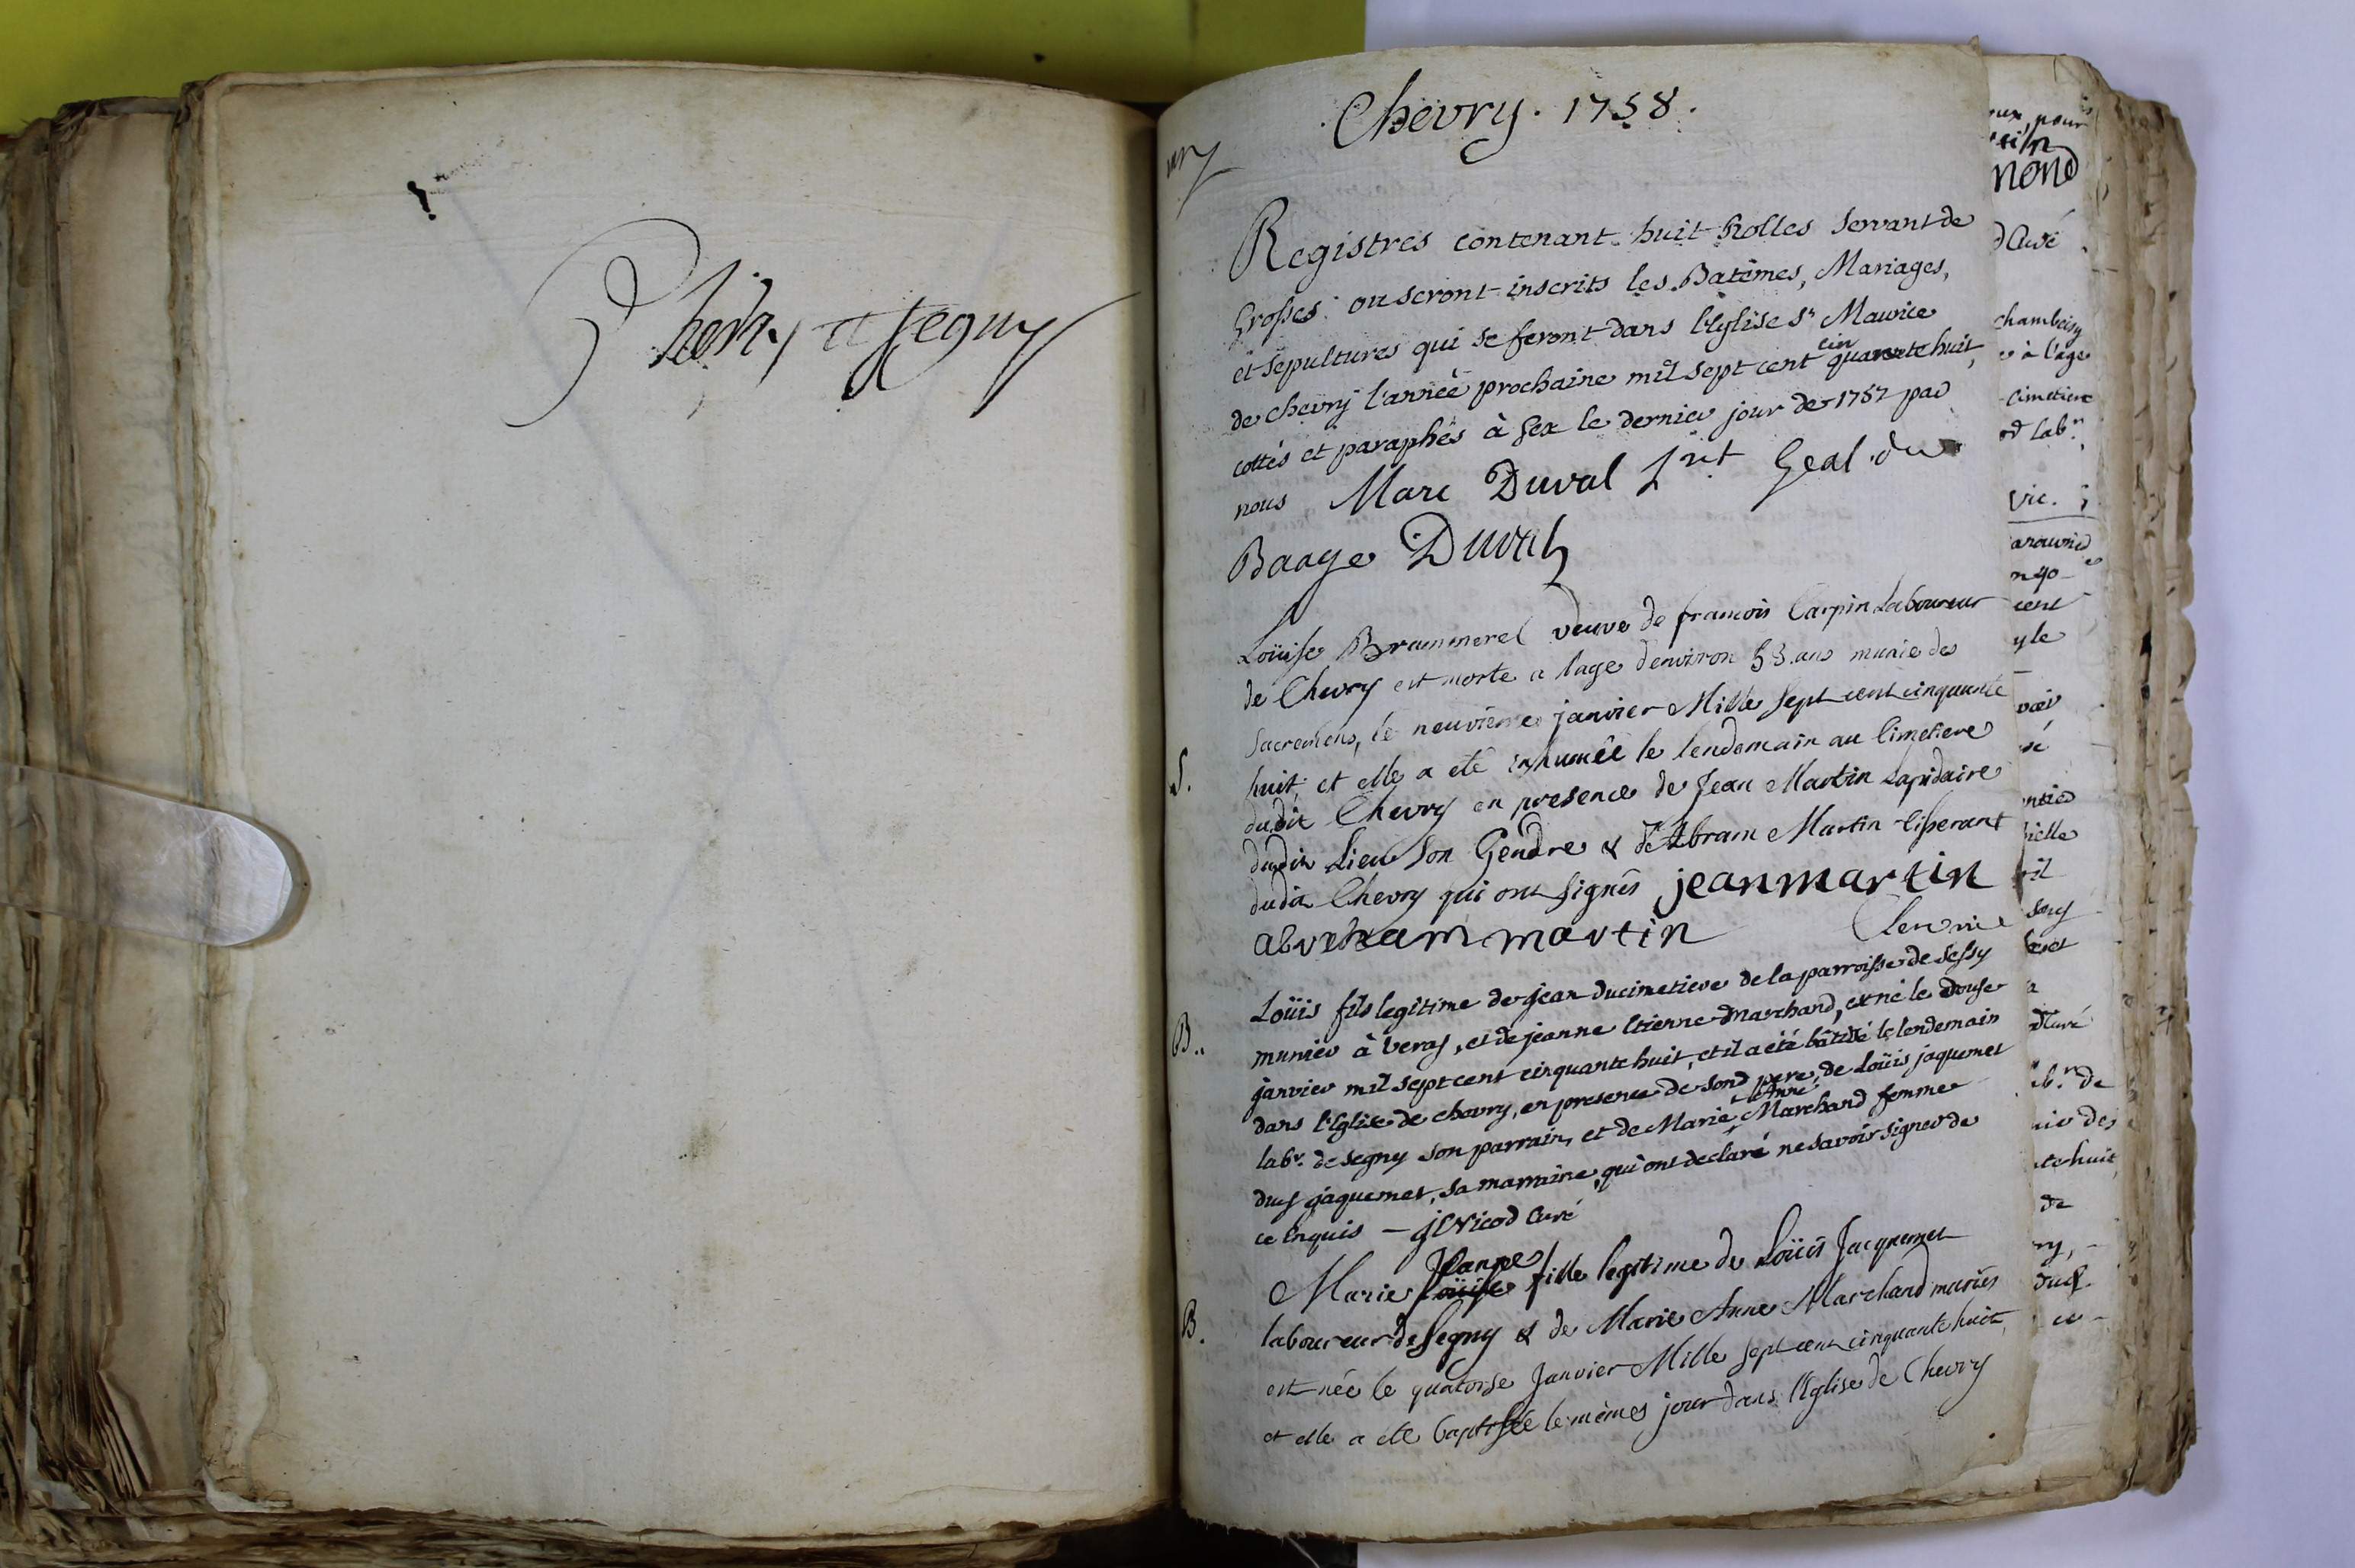 Chevry et Segny
Chevry. 1758.
Registres contenant huit Rolles servant de
Grosses ou seront inscrits les Batêmes, Mariages,
et sepultures qui se feront dans l'Eglise St Maurice
de chevry l'année prochaine mil sept cent cinquante huit,
cottés et paraphés à Gex le dernier jour de 1757 par
nous Marc Duval Lnt Geal du
Baage Duval
Loüise Brammerel veuve de francois Carpin Laboureur
de Chevry est morte a lage denviron 53 ans munie des
Sacremens, le neuvieme janvier Mille Sept cent cinquante
S.
huit, et elle a eté inhumée le lendemain au Cimetiere
dudit Chevry en presence de Jean Martin Lapidaire
dudit Lieu Son Gendre & d'Abram Martin tisserant
dudit Chevry qui ont signés jean martin
abraham martin
Loüis fils legitime de jean ducimetiere de la parroisse de Sessy
B..
munier à veraz, et de jeanne Etienne marchand, est né le douse
janvier mil sept cent cinquante huit, et il a été bâtisé le lendemain
dans l'Eglise de chevry, en presence de son pere, de Loüis jaquemet
labr. de segny son parrain, et de Marie Anne Marchand femme
dud jaquemet, sa marraine, qui ont declaré ne savoir signer de
ce Enquis — Nicod Curé
Marie Jeanne fille legitime de Loüis Jacquemet
B.
laboureur de Segny & de Marie Anne Marchand mariés
est née le quatorse Janvier Mille Sept cent cinquante huit,
et elle a eté baptisée le mêmes jour dans l'Eglise de Chevry